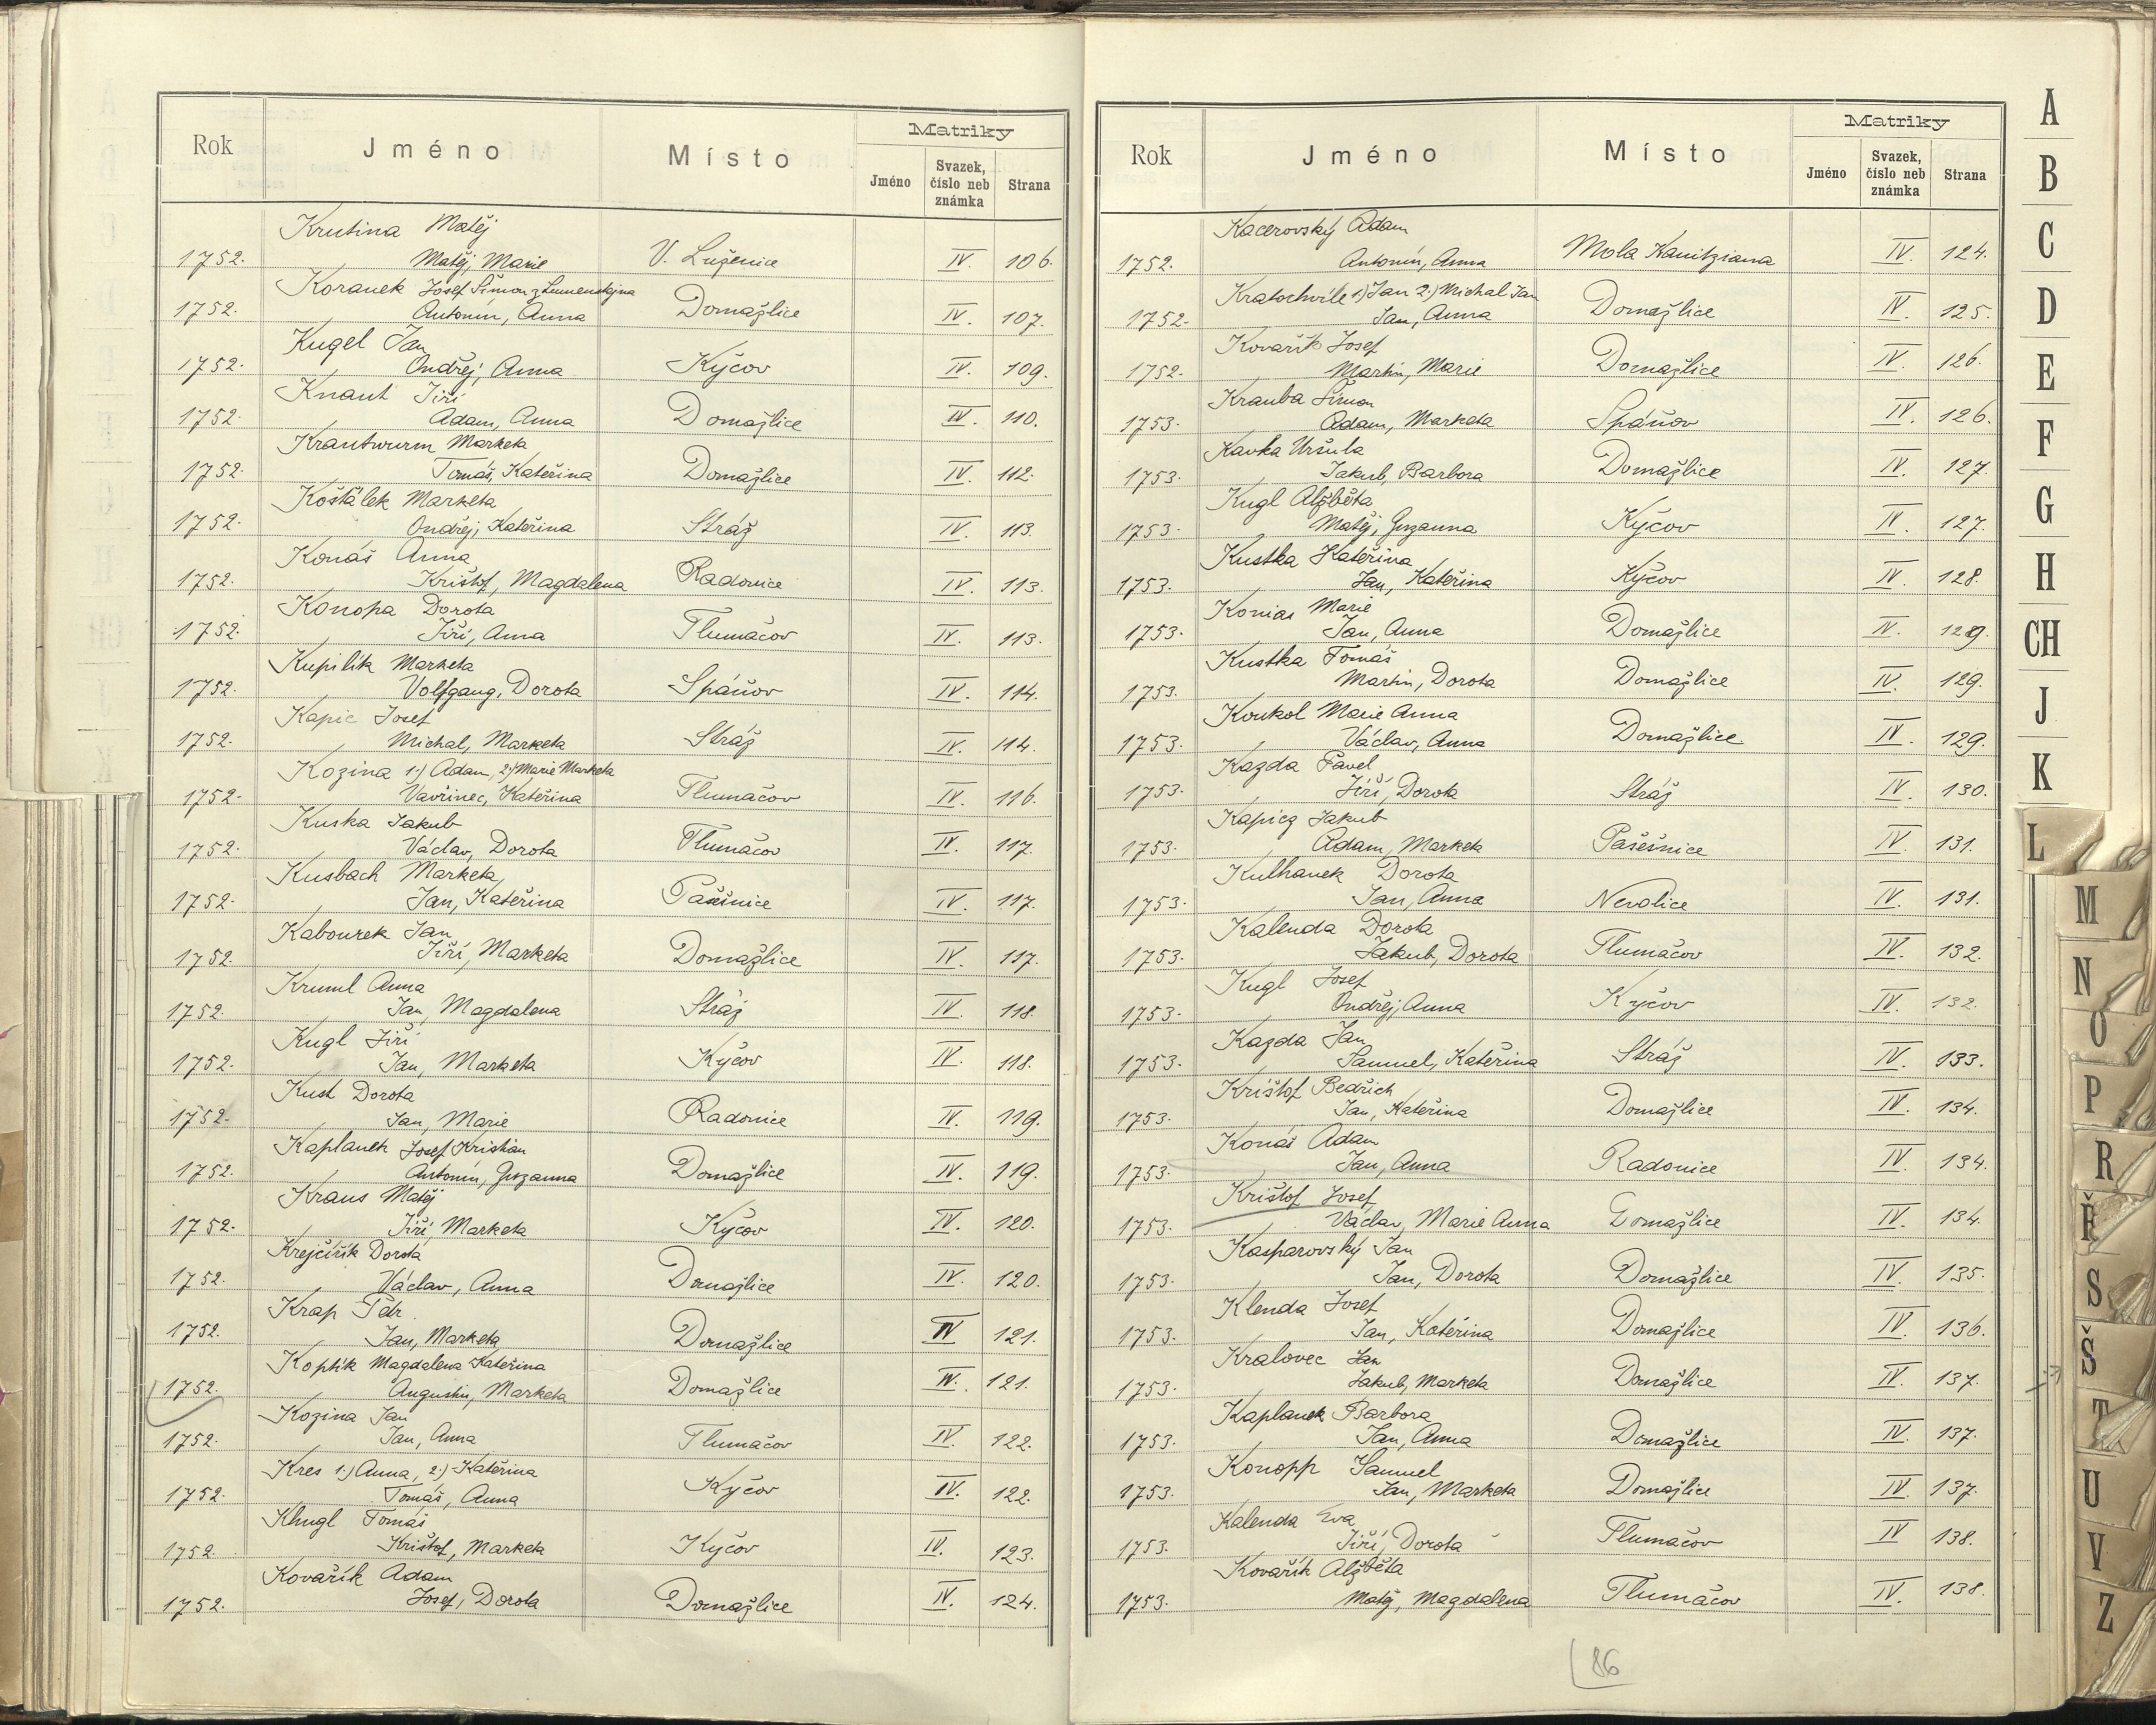 Rok Jméno Místo Matriky
Jméno Svazek, číslo neb známka Strana
Krutina Matěj
1752. Matěj, Marie V. Luženice IV. 106.
Koranek Josef Šimon z
1752. Antonín, Anna Domažlice IV. 107.
Kugel Jan
1752. Ondřej, Anna Kýčov IV. 109.
Knaut Jiří
1752. Adam, Anna Domažlice IV. 110.
Krautwurm Marketa
1752. Tomáš, Kateřina Domažlice IV. 112.
Košťálek Marketa
1752. Ondřej, Kateřina Stráž IV. 113.
Konáš Anna
1752. Krištof, Magdalena Radonice IV. 113.
Konopa Dorota
1752. Jiří, Anna Tlumačov IV. 113.
Kupilik Marketa
1752. Volfgang, Dorota Spáňov IV. 114.
Kapic Josef
1752. Michal, Marketa Stráž IV. 114.
Kozina 1.) Adam, 2.) Marie Marketa
1752. Vavřinec, Kateřina Tlumačov IV. 116.
Kuska Jakub
1752. Václav, Dorota Tlumačov IV. 117.
Kusbach Marketa
1752. Jan, Kateřina IV. 117.
Kabourek Jan
1752. Jiří, Marketa Domažlice IV. 117.
Kruml Anna
1752. Jan, Magdalena Stráž IV. 118.
Kugl Jiří
1752. Jan, Marketa Kýčov IV. 118.
Kust Dorota
1752. Jan, Marie Radonice IV. 119.
Kaplanek Josef Kristián
1752. Antonín, Zuzanna Domažlice IV. 119.
Kraus Matěj
1752. Jiří, Marketa Kýčov IV. 120.
Krejčiřik Dorota
1752. Václav, Anna Domažlice IV. 120.
Krap Petr
1752. Jan, Marketa Domažlice IV 121.
Koptik Magdalena Kateřina
1752. Augustin, Marketa Domažlice IV. 121.
Kozina Jan
1752. Jan, Anna Tlumačov IV. 122.
Kres 1.) Anna, 2.) Kateřina
1752. Tomáš, Anna Kýčov IV. 122.
Khugl Tomáš
1752. Krištof, Marketa Kýčov IV. 123.
Kovařík Adam
1752. Josef, Dorota Domažlice IV. 124.
Rok Jméno Místo Matriky
Jméno Svazek, číslo neb známka Strana
Kacerovský Adam
1752. Antonín, Anna Mola Kanitziana IV. 124.
Kratochvíle 1.) Jan 2.) Michal Jan
1752. Jan, Anna Domažlice IV. 125.
Kovařík Josef
1752. Martin, Marie Domažlice IV. 126.
Krauba Šimon
1753. Adam, Marketa Spáňov IV. 126.
Kavka Uršula
1753. Jakub, Barbora Domažlice IV. 127.
Kugl Alžběta
1753. Matěj, Zuzanna Kýčov IV. 127.
Kustka Kateřina
1753. Jan, Kateřina Kýčov IV. 128.
Konias Marie
1753. Jan, Anna Domažlice IV. 129.
Kustka Tomáš
1753. Martin, Dorota Domažlice IV. 129.
Koukol Marie Anna
1753. Václav, Anna Domažlice IV. 129.
Kazda Pavel
1753. Jiří, Dorota Stráž IV. 130.
Kapicz Jakub
1753. Adam, Marketa Pašešnice IV. 131.
Kulhanek Dorota
1753. Jan, Anna Nevolice IV. 131.
Kalenda Dorota
1753. Jakub, Dorota Tlumačov IV. 132.
Kugl Josef
1753. Ondřej, Anna Kýčov IV. 132.
Kazda Jan
1753. Samuel, Kateřina Stráž IV. 133.
Krištof Bedřich
1753. Jan, Kateřina Domažlice IV. 134.
Konáš Adam
1753. Jan, Anna Radonice IV. 134.
Krištof Josef
1753. Václav, Marie Anna Domažlice IV. 134.
Kasparovský Jan
1753. Jan, Dorota Domažlice IV. 135.
Klenda Josef
1753. Jan, Kateřina Domažlice IV. 136.
Kralovec Jan
1753. Jakub, Marketa Domažlice IV. 137.
Kaplanek Barbora
1753. Jan, Anna Domažlice IV. 137.
Konopp Samuel
1753. Jan, Marketa Domažlice IV. 137.
Kalenda Eva
1753. Jiří, Dorota Tlumačov IV 138.
Kovařík Alžběta
1753. Matěj, Magdalena Tlumačov IV. 138.
86
A
B
C
D
E
F
G
H
CH
J
K
L
M
N
O
P
R
Ř
S
Š
T
U
V
Z